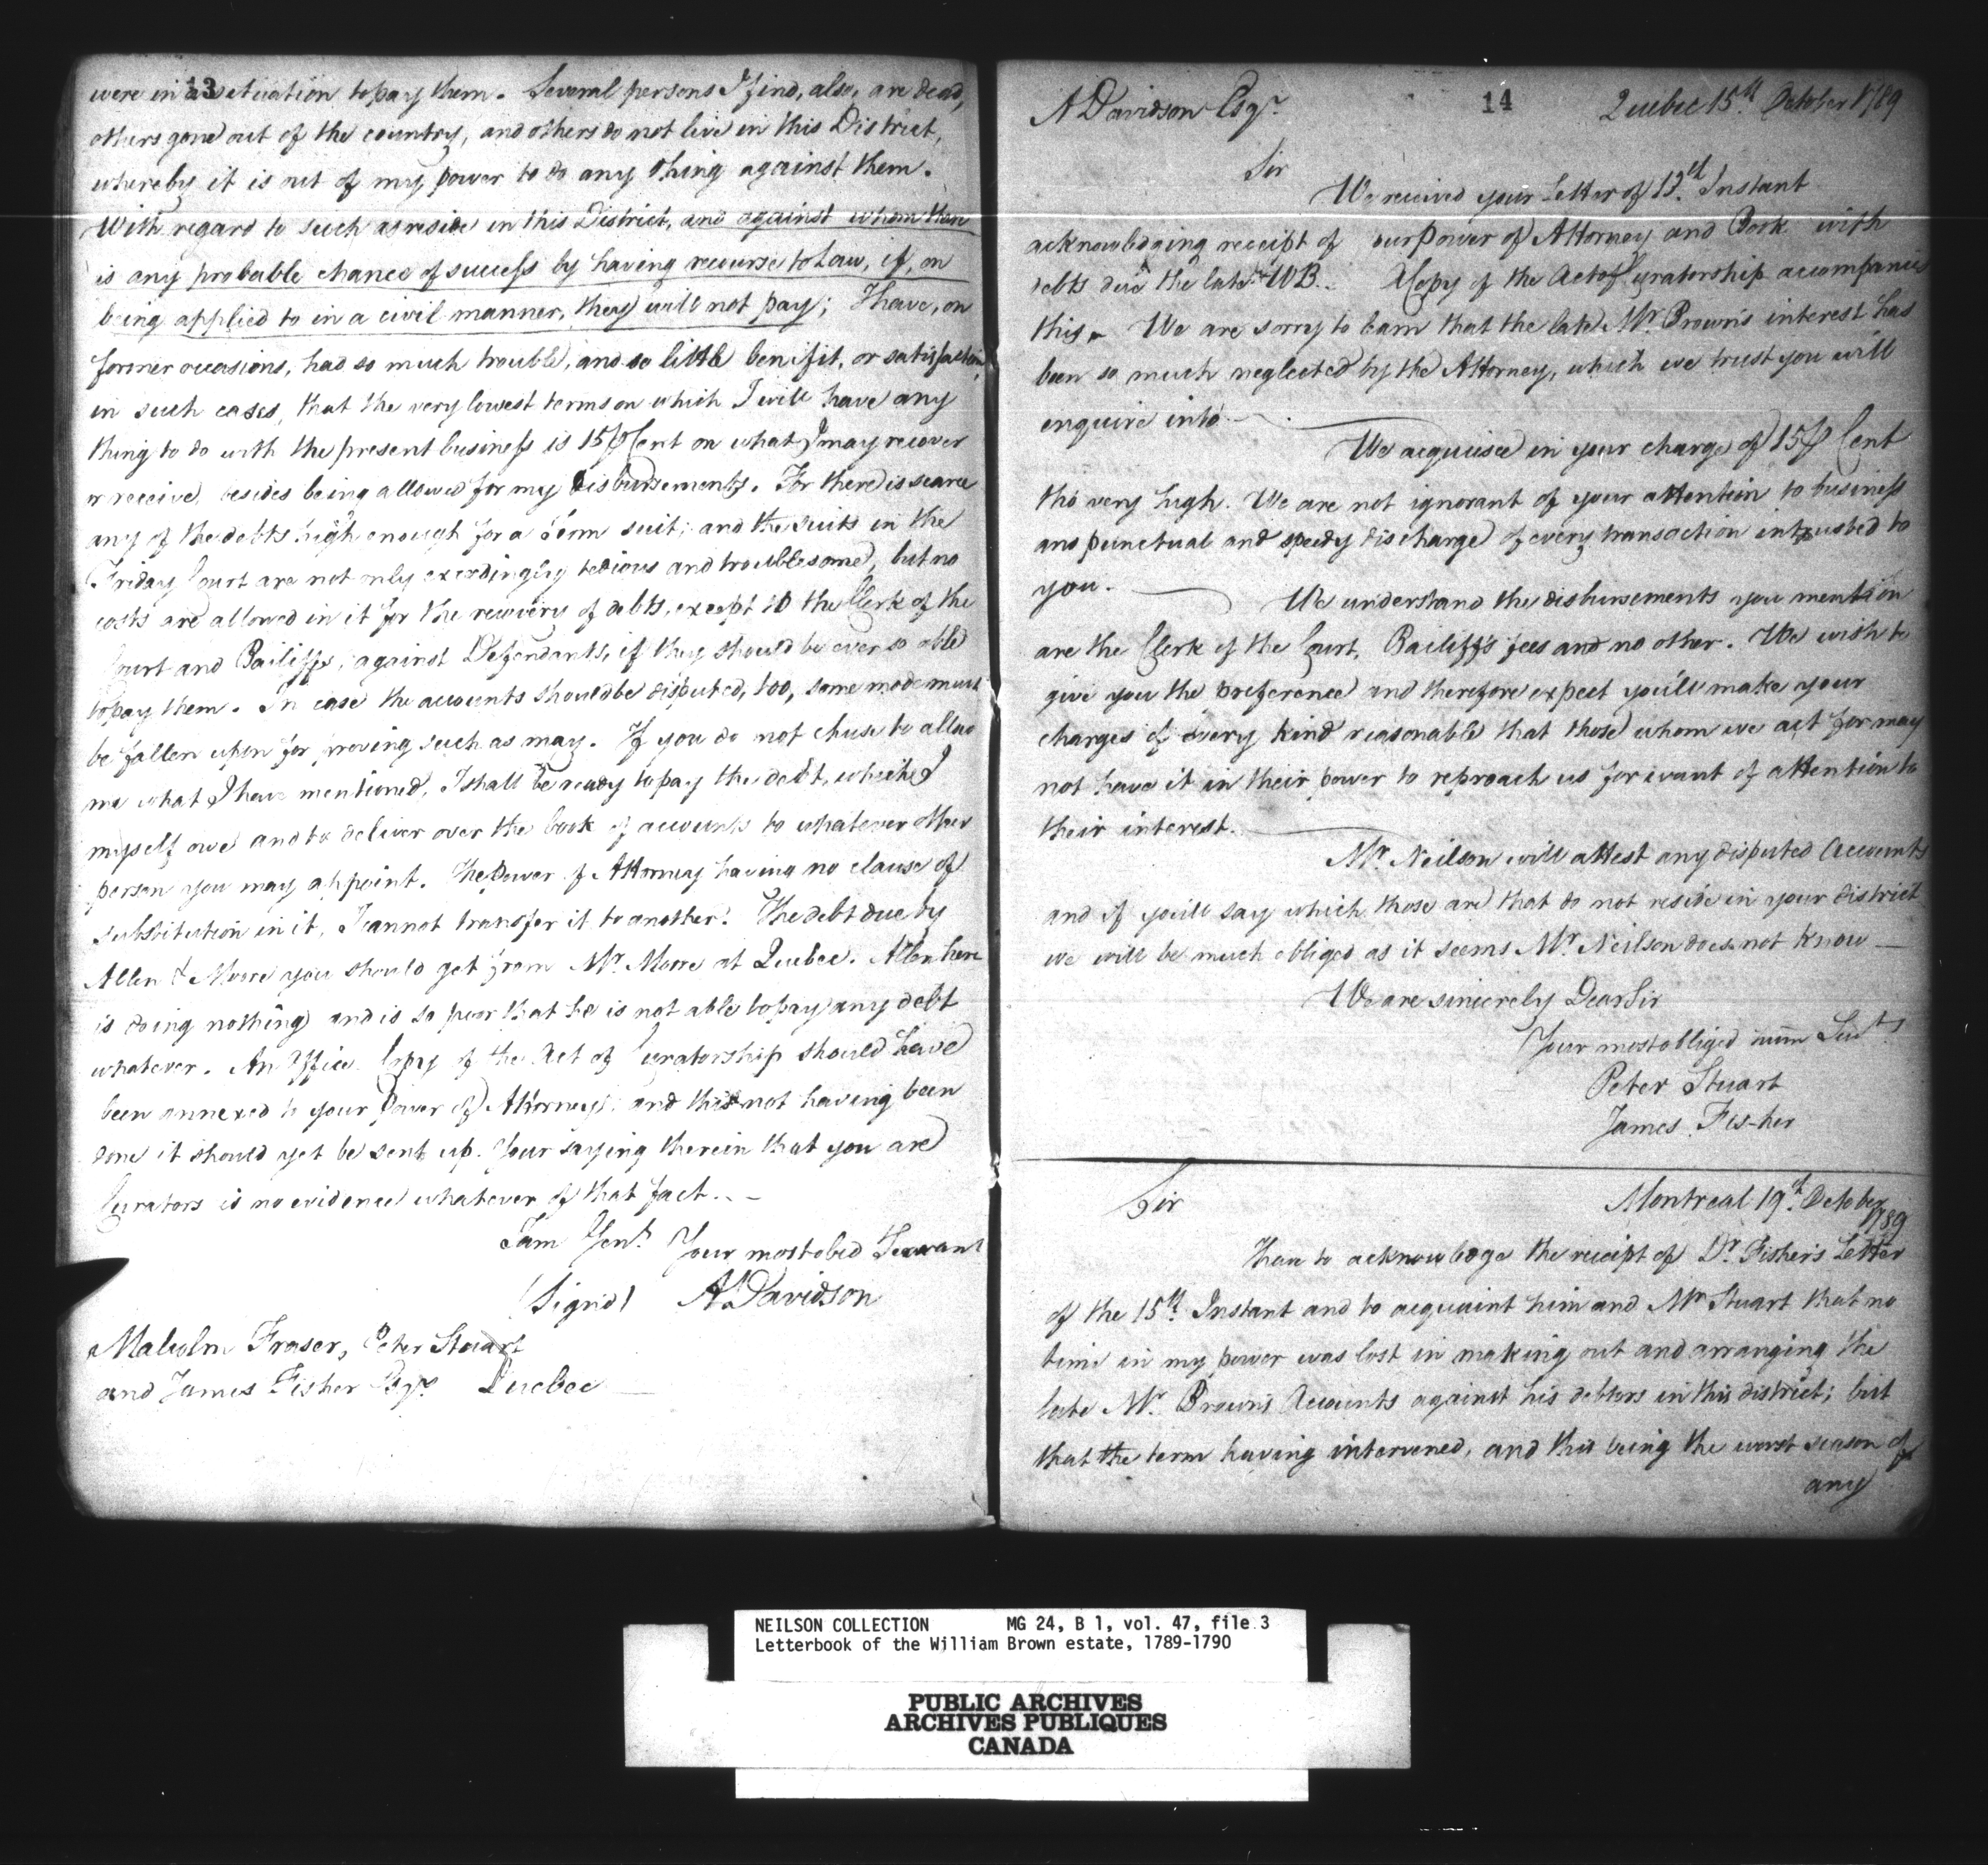 13
were in a situation to pay them. Several persons I find, also, are dead,
others gone out of the country, and others do not live in this District,
whereby it is out of my power to do any thing against them.
With regard to such as reside in this District, and against whom there
is any probable chance of success by having recourse to Law, if, on
being applied to in a civil manner, they will not pay; I have, on
former occasions, had so much trouble, and so little benifit, or satisfaction,
in such cases, that the very lowest terms on which I will have any
thing to do with the present business is 15 ⅌ Cent on what I may recover
or receive, besides being allowed for my disbursements. For there is scarce
any of the debts high enough for a Term suit; and the suits in the
Friday Court are not only exceedingly tedious and troublesome, but no
costs are allowed in it for the recovery of debts, except to the Clerk of the
Court and Bailiffs, against Defendants, if they should be ever so able
to pay them. In case the accounts should be disputed, too, some mode must
be fallen upon for proving such as may. If you do not chuse to allow
me what I have mentioned, I shall be ready to pay the debt, which I
myself owe and to deliver over the book of accounts to whatever other
person you may appoint. The Power of Attorney having no clause of
substitution in it, I cannot transfer it to another. The debt due by
Allen & Moore you should get from Mr. Moore at Quebec. Allen here
is doing nothing and is so poor that he is not able to pay any debt
whatever. An Office Copy of the Act of Curatorship should have
been annexed to your Power of Attorney; and that not having been
done it should yet be sent up. Your saying therein that you are
Curators is no evidence whatever of that fact. . –
I am Gent. Your most obed Servant
(Signed) A. Davidson
Malcolm Fraser, Peter Stuart
and James Fisher Esqrs. Quebec
14
A Davidson Esqr. Quebec 15th October 1789
Sir
We received your Letter of 13th Instant
acknowledging receipt of our Power of Attorney and Book with
debts due the late WB. A Copy of the Act of Curatorship accompanies
this. We are sorry to learn that the late Mr. Brown's interest has
been so much neglected by the Attorney, which we trust you will
enquire into
We acquiesce in your charge of 15 ⅌ Cent
tho very high. We are not ignorant of your attention to business
and punctual and speedy discharge of every transaction intrusted to
you.
We understand the disbursements you mention
are the Clerk of the Court, Bailiff's fees and no other. We wish to
give you the preference and therefore expect you'll make your
charges of every kind reasonable that those whom we act for may
not have it in their power to reproach us for want of attention to
their interest.
Mr. Neilson will attest any disputed Accounts
and if you'll say which those are that do not reside in your district
we will be much obliged as it seems Mr. Neilson does not know —
We are sincerely Dear Sir
Your most obliged hum Servts
Peter Stuart
James Fisher
Sir Montreal 19th. October
1789
I have to acknowledge the receipt of Dr. Fisher's Letter
of the 15th. Instant and to acquaint him and Mr Stuart that no
time in my power was lost in making out and arranging the
late Mr. Brown's Accounts against his debtors in this district; but
that the term having intervened, and this being the worst season of
any
NEILSON COLLECTION MG 24, B 1, vol. 47, file 3
Letterbook of the William Brown estate, 1789-1790
PUBLIC ARCHIVES
ARCHIVES PUBLIQUES
CANADA